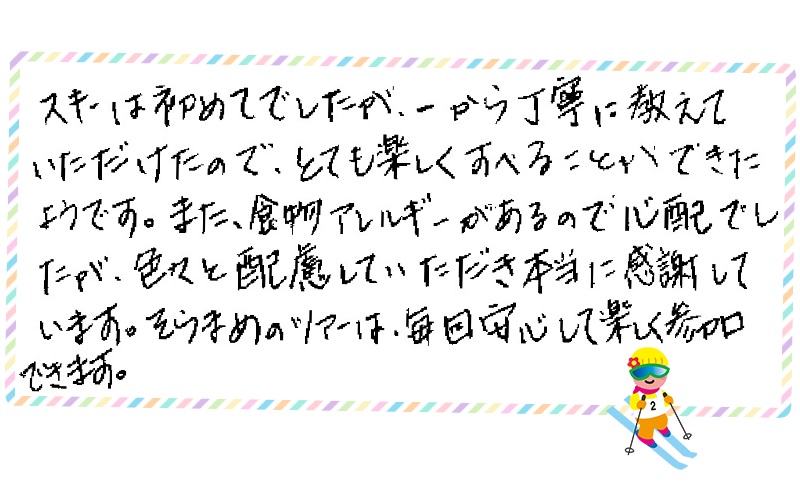 スキーは初めてでしたが、一から丁寧に教えて
いただけたので、とても楽しくすべることができた
ようです。また、食物アレルギーがあるので心配でし
たが、色々と配慮していただき本当に感謝して
います。そらまめのツアーは、毎回安心して楽しく参加
できます。
2